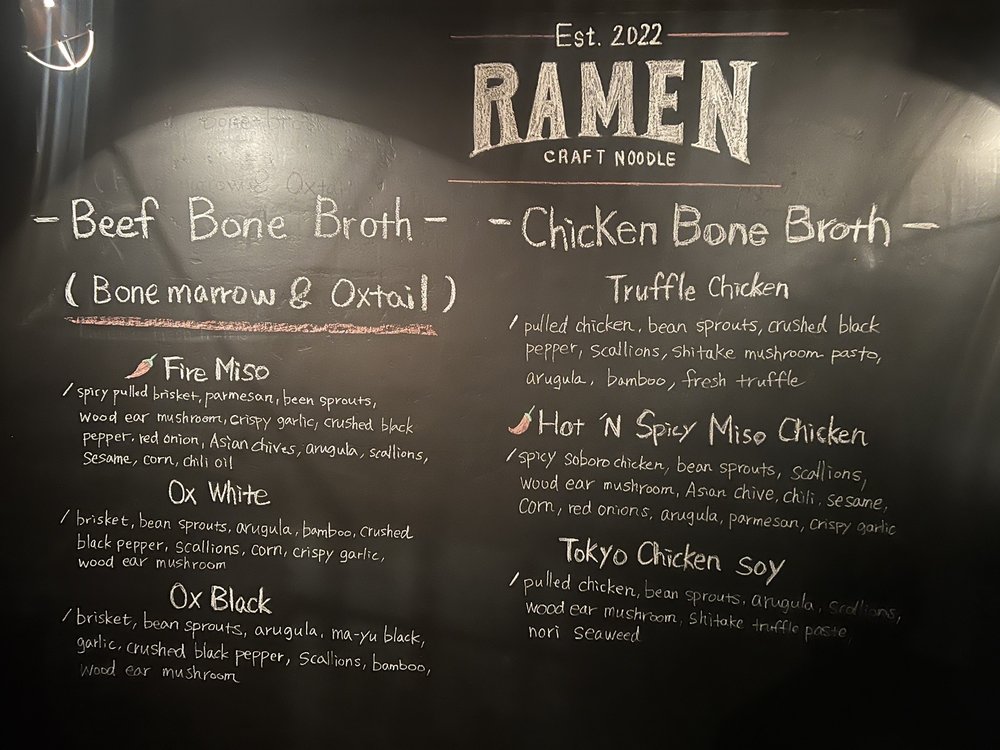 Est. 2022
RAMEN
CRAFT NOODLE
- Beef Bone Broth -
( Bone marrow & Oxtail )
Fire Miso
/ spicy pulled brisket, parmesan, been sprouts,
wood ear mushroom, crispy garlic, crushed black
pepper, red onion, Asian chives, arugula, scallions,
sesame, corn, chili oil
Ox White
/ brisket, bean sprouts, arugula, bamboo, crushed
black pepper, scallions, corn, crispy garlic,
wood ear mushroom
Ox Black
/ brisket, bean sprouts, arugula, ma-yu black,
garlic, crushed black pepper, scallions, bamboo,
wood ear mushroom
- Chicken Bone Broth -
Truffle Chicken
/ pulled chicken, bean sprouts, crushed black
pepper, scallions, shitake mushroom pasto,
arugula, bamboo, fresh truffle
Hot 'N Spicy Miso Chicken
/ spicy soboro chicken, bean sprouts, scallions,
wood ear mushroom, Asian chive, chili, sesame,
corn, red onions, arugula, parmesan, crispy garlic
Tokyo Chicken soy
/ pulled chicken, bean sprouts, arugula, scallions,
wood ear mushroom, shitake truffle paste,
nori seaweed